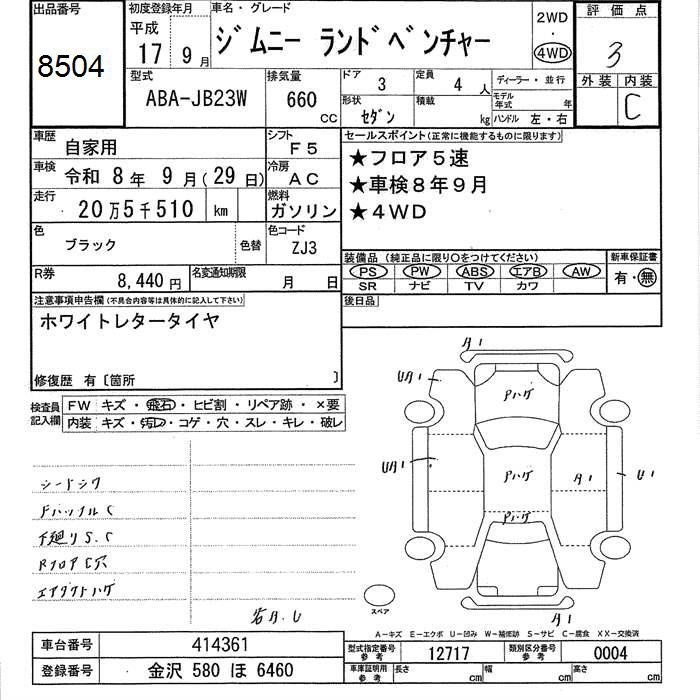 出品番号
8504
初度登録年月
平成
17 9月
車名・グレード
ジムニー ランドベンチャー
2WD
・
4WD
評価点
3
外装 内装
C
型式
ABA-JB23W
排気量
660 cc
ドア 3
定員 4 人
形状 セダン
積載 kg
ディーラー・並行
モデル年式 年
ハンドル 左・右
車歴
自家用
シフト
F5
車検
令和 8年 9月(29日)
冷房
AC
走行
20万5千510 km
燃料
ガソリン
色
ブラック
色替
色コード
ZJ3
R券
8,440円
名変通知期限
月 日
セールスポイント(正常に機能するものに限ります)
★フロア5速
★車検8年9月
★4WD
装備品(純正品に限り○をつけてください)
PS PW ABS エアB AW
SR ナビ TV カワ
新車保証書
有・無
後日品
注意事項申告欄(不具合内容等は具体的に記入して下さい)
ホワイトレタータイヤ
修復歴 有〔箇所 〕
検査員記入欄
FW キズ・飛石・ヒビ割・リペア跡・×要
内装 キズ・汚レ・コゲ・穴・スレ・キレ・破レ
シートシワ
F バンパル C
下廻りS.C
RフロアC穴
エアダクトハゲ
若月.U
A1
UA1
Pハゲ
UA1
Pハゲ
A1
U1
Pハゲ
A1
スペア
A-キズ E-エクボ U-凹み W-補修跡 S-サビ C-腐食 XX-交換済
車台番号 414361
登録番号 金沢 580 ほ 6460
型式指定番号 参考 12717
類別区分番号 参考 0004
車庫証明用 参考 長さ cm 幅 cm 高さ cm